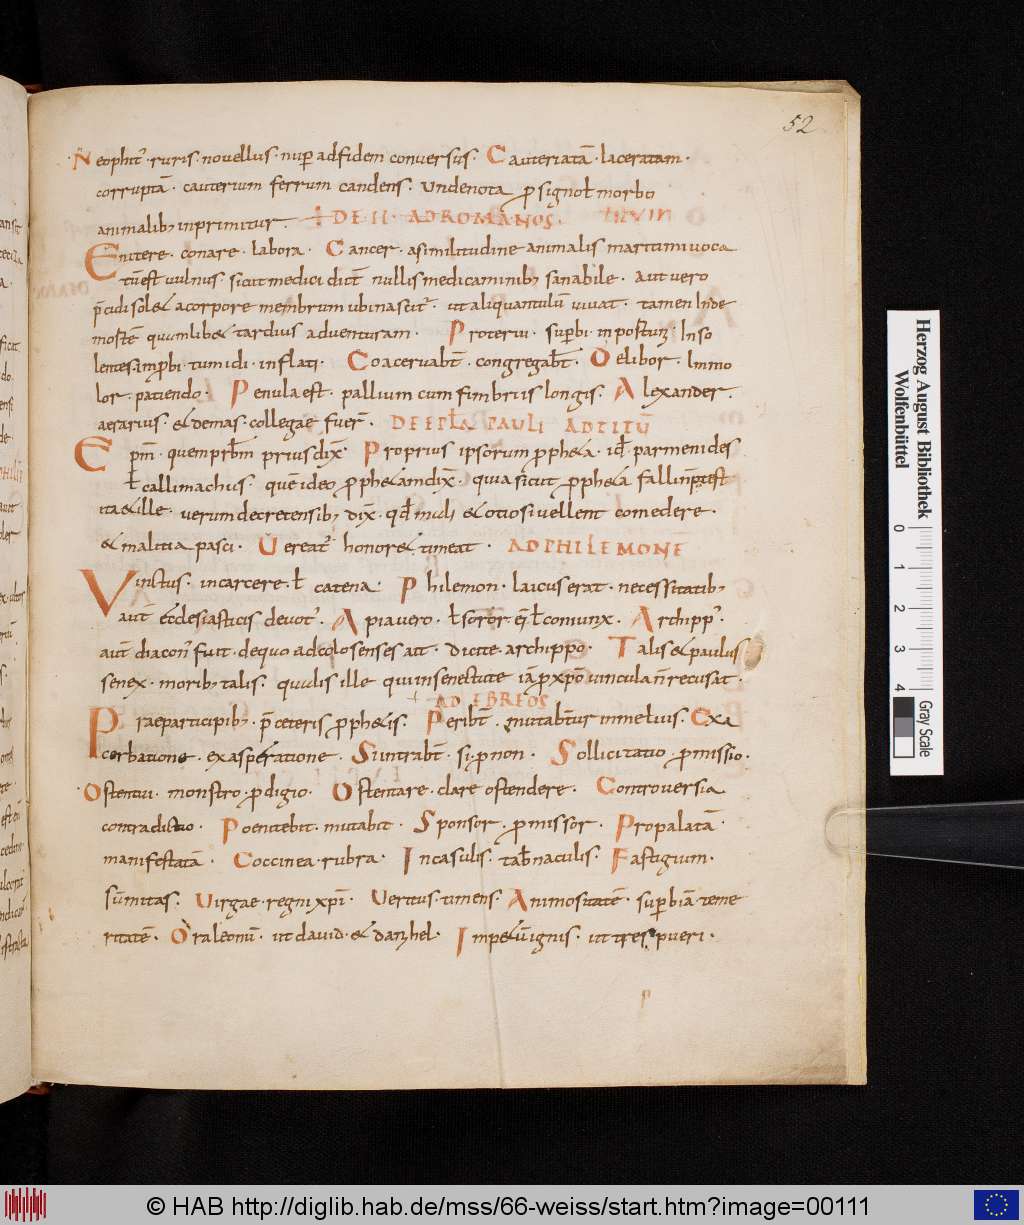 52
Neophit᾽ · ruris · novellus · nup̄ adfidem conversus · Cauteriatā · laceratam ·
corruptā · cauterium ferrum candens · undenota p̄ signol̄ morbo
animalib; inprimitur · DE II · AD ROMANOS ·
Enitere · conare · labora · Cancer · asimilitudine animalis martimi voca
tū est vulnus · sicut medici dicūt nullis medicaminib; sanabile · aut vero
p̄cidi sol& acorpore membrum ubi nascit᾽ · ut aliquantulū vivat · tamen Inde
mostē quumlib& tardius adventuram · Protervi · sup̄bi · Inso
lentes · tumidi · inflati · Coacervabt̄ · congregabt̄ · Delibor · Immo
lor · patiendo · Penula est · pallium cum fimbriis longis · Alexander ·
aerarius · & demas · collegae fuer̄ · DE EPL̄A PAULI AD TITŪ
Epm̄ · quem prb̄m prius dix̄ · Proprius ipsorum proph&a · id̄ · parmenides
l̄ callimachus · quē ideo proph&am dix̄ · quia sicut proph&a
ita & ille · verum decretensib; dix̄ · qd̄ muli & otiosi vellent comedere ·
& malitia pasci · Uereat᾽ honor& & timeat · AD PHILEMONĒ
Vinctus · incarcere · l̄ catena · Philemon · laicus erat · necessitatib;
aut̄ ecclesiasticis devot᾽ · Apia vero · l̄ soror · l̄ coniunx · Archipp᾽ ·
aut̄ diacon᾽ fuit · de quo ad colosenses ait · dicite archippo · Talis & paulus
senex · morib; talis · qualis ille qui in senectute iā p̄ xpō vincula n̄ recusat ·
AD EBREOS
Prae participib; · p̄ ceteris proph&is · Peribt̄ · mutabt̄ur in melius · Exa
cerbatione · exasperatione · Si intrabt̄ · si · p̄ non · Sollicitatio · p̄missio ·
Ostentui · monstro · p̄digio · Ostentare · clare ostendere · Controversia
contradictio · Poenitebit · mutabit · Sponsor · p̄missor · Propalatā ·
manifestatam · Coccinea · rubra · In casulis · tab̄naculis · Fastigium ·
sūmitas · Uirgae · regni xpī · Ueritus · timens · Animositatē · sup̄biā · teme
ritatē · Ora leonū · ut david · & danihel · Imp&ū ignis · ut tres pueri ·
Herzog August Bibliothek
Wolfenbüttel
0 1 2 3 4
Gray Scale
© HAB http://diglib.hab.de/mss/66-weiss/start.htm?image=00111